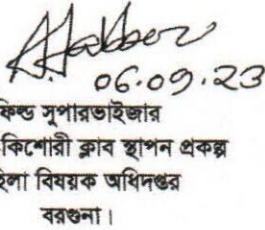 06.09.23
ফিল্ড সুপারভাইজার
কিশোরী ক্লাব স্থাপন প্রকল্প
বিষয়ক অধিদপ্তর
বরগুনা।